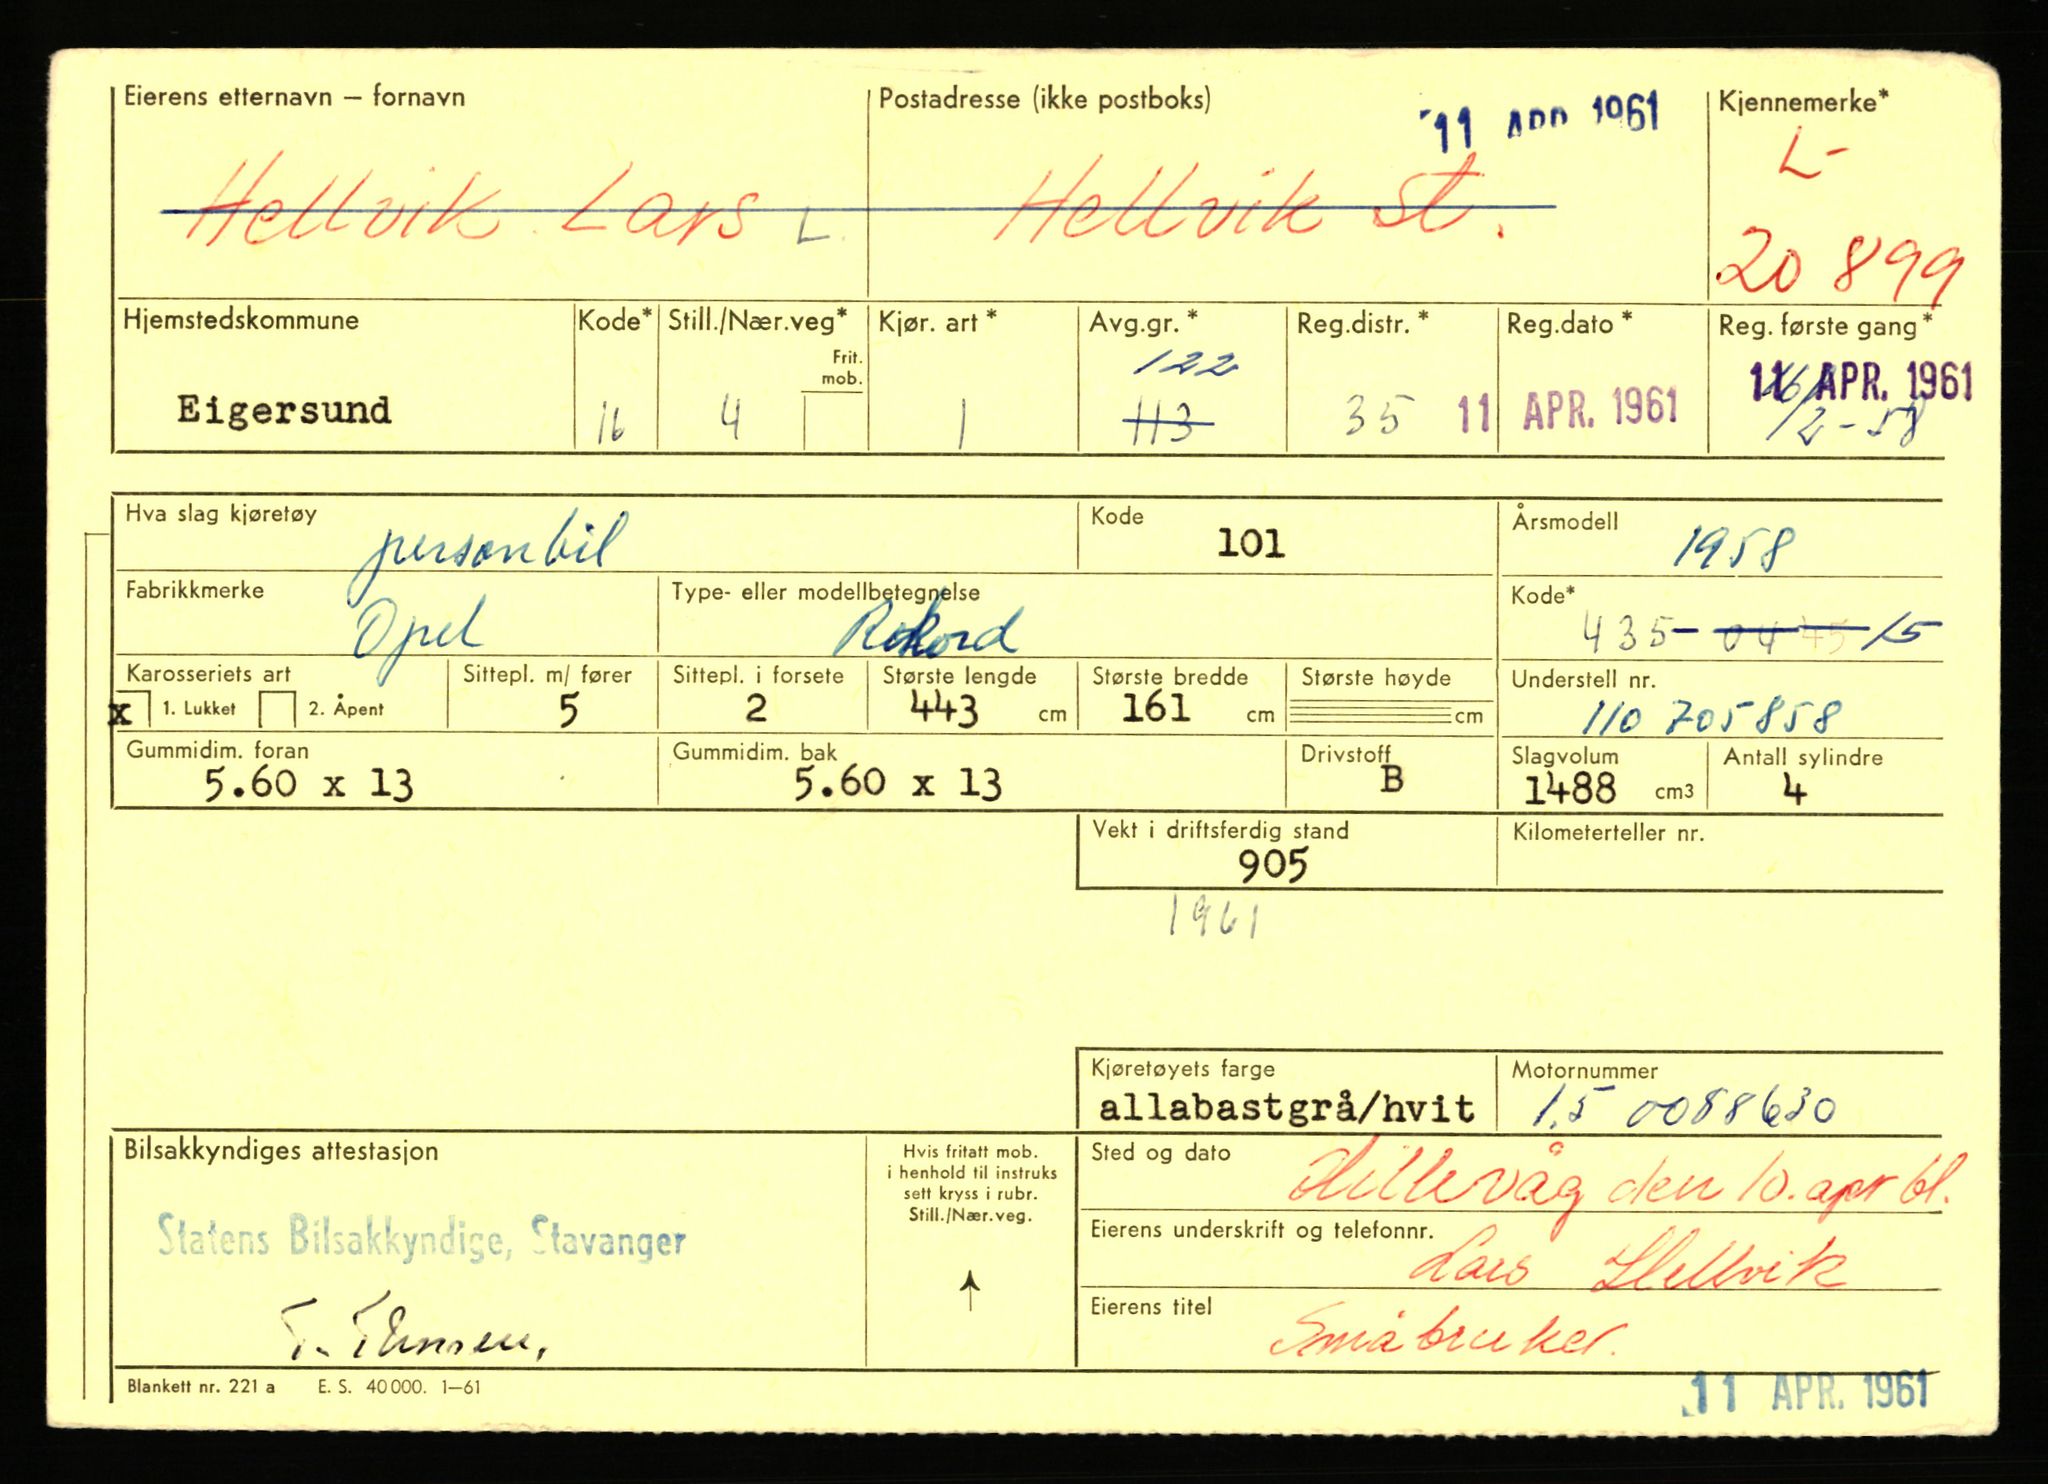 Eierens etternavn – fornavn
Postadresse (ikke postboks)
11 APR. 1961
Kjennemerke*
Hellvik Lars L.
Hellvik st.
L-
20 899
Hjemstedskommune
Kode*
Still./Nær.veg*
Frit.
mob.
Kjør. art *
Avg.gr. *
Reg.distr. *
Reg.dato *
Reg. første gang *
Eigersund
16
4
1
122
113
35
11 APR. 1961
11 APR. 1961
/2-58
Hva slag kjøretøy
personbil
Kode
101
Årsmodell
1958
Fabrikkmerke
Opel
Type- eller modellbetegnelse
Rekord
Kode*
435- 04 45 15
Karosseriets art
x 1. Lukket 2. Åpent
Sittepl. m/ fører
5
Sittepl. i forsete
2
Største lengde
443 cm
Største bredde
161 cm
Største høyde
cm
Understell nr.
110 705858
Gummidim. foran
5.60 x 13
Gummidim. bak
5.60 x 13
Drivstoff
B
Slagvolum
1488 cm3
Antall sylindre
4
Vekt i driftsferdig stand
905
Kilometerteller nr.
1961
Kjøretøyets farge
allabastgrå/hvit
Motornummer
1,5 0088630
Bilsakkyndiges attestasjon
Statens Bilsakkyndige, Stavanger
Hvis fritatt mob.
i henhold til instruks
sett kryss i rubr.
Still./Nær.veg.
Sted og dato
Hillevåg den 10. apr 61.
Eierens underskrift og telefonnr.
Lars Hellvik
Eierens titel
Småbruker.
Blankett nr. 221 a E. S. 40 000. 1–61
11 APR. 1961